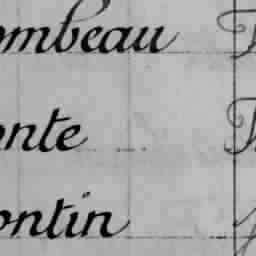 ombeau
onte
ontin